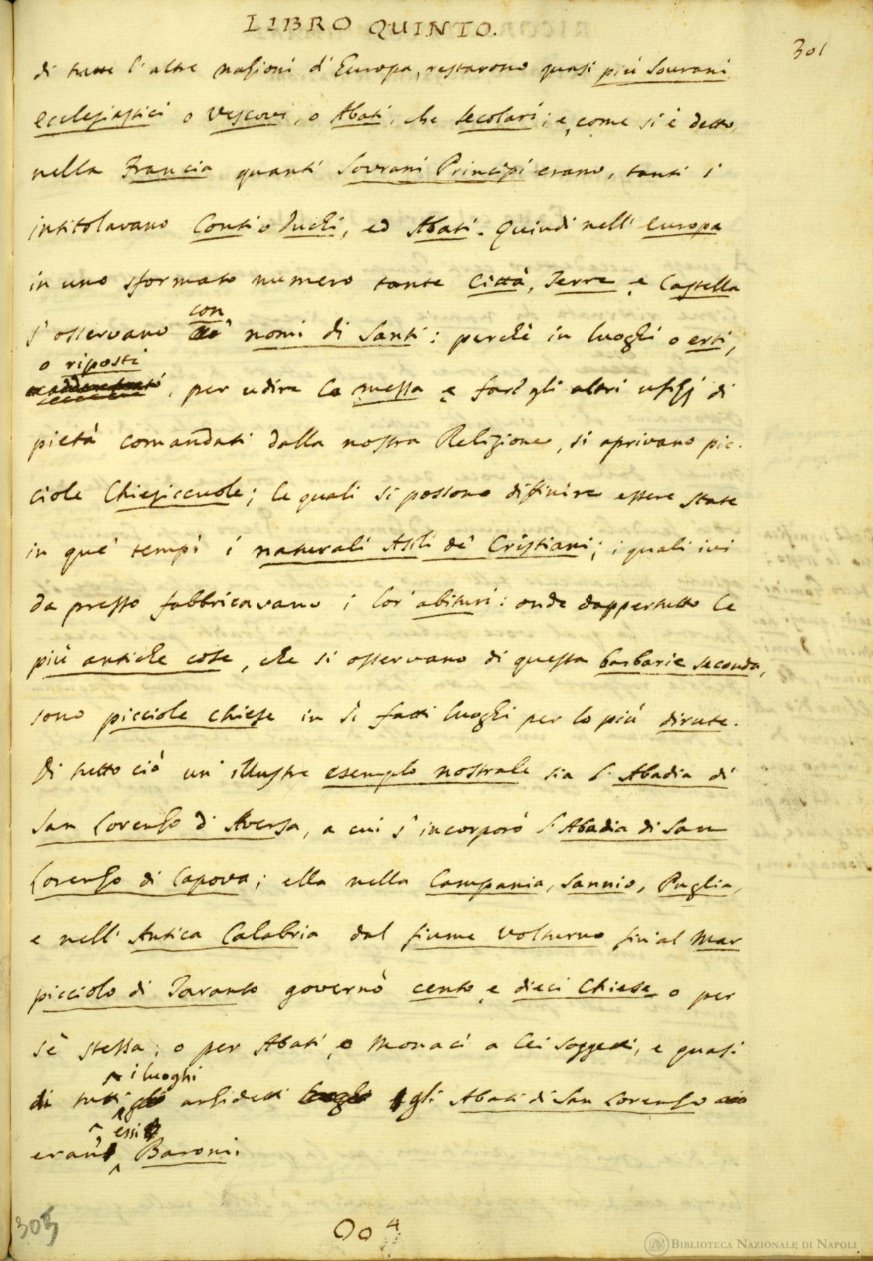 LIBRO QUINTO.
301
di tutte l'altre nazioni d'Europa, restarono quasi più Sourani
ecclesiastici o Vescovi, o Abati, che secolari; e, come si è detto,
nella Francia quanti Sovrani Principi erano, tanti s'
intitolavano Conti o Duchi, ed Abati. Quindi nell'Europa
in uno sformato numero tante Città, Terre e Castella
con
s'osservano nomi di Santi: perchè in luoghi o erti,
o riposti
, per udire la messa e fare gli altri ufizj di
pietà comandati dalla nostra Religione, si aprivano pic-
ciole Chiesiccuole; le quali si possono difinire essere state
in que' tempi i naturali Asili de' Cristiani; i quali ivi
da presso fabbricavano i lor' abituri: onde dappertutto le
più antiche cose, che si osservano di questa barbarie seconda,
sono picciole chiese in sì fatti luoghi per lo più dirute.
Di tutto ciò un' illustre esemplo nostrale sia l'Abadia di
San Lorenzo d'Aversa, a cui s'incorporò l'Abadia di San
Lorenzo di Capova; ella nella Campania, Sannio, Puglia,
e nell'Antica Calabria dal fiume Volturno fin al Mar
picciolo di Taranto governò cento e dieci Chiese o per
sè stessa, o per Abati, o Monaci a lei soggetti, e quasi
i luoghi
di tutti anzidetti gli Abati di San Lorenzo
essi
eran Baroni.
305
Oo 4
BIBLIOTECA NAZIONALE DI NAPOLI